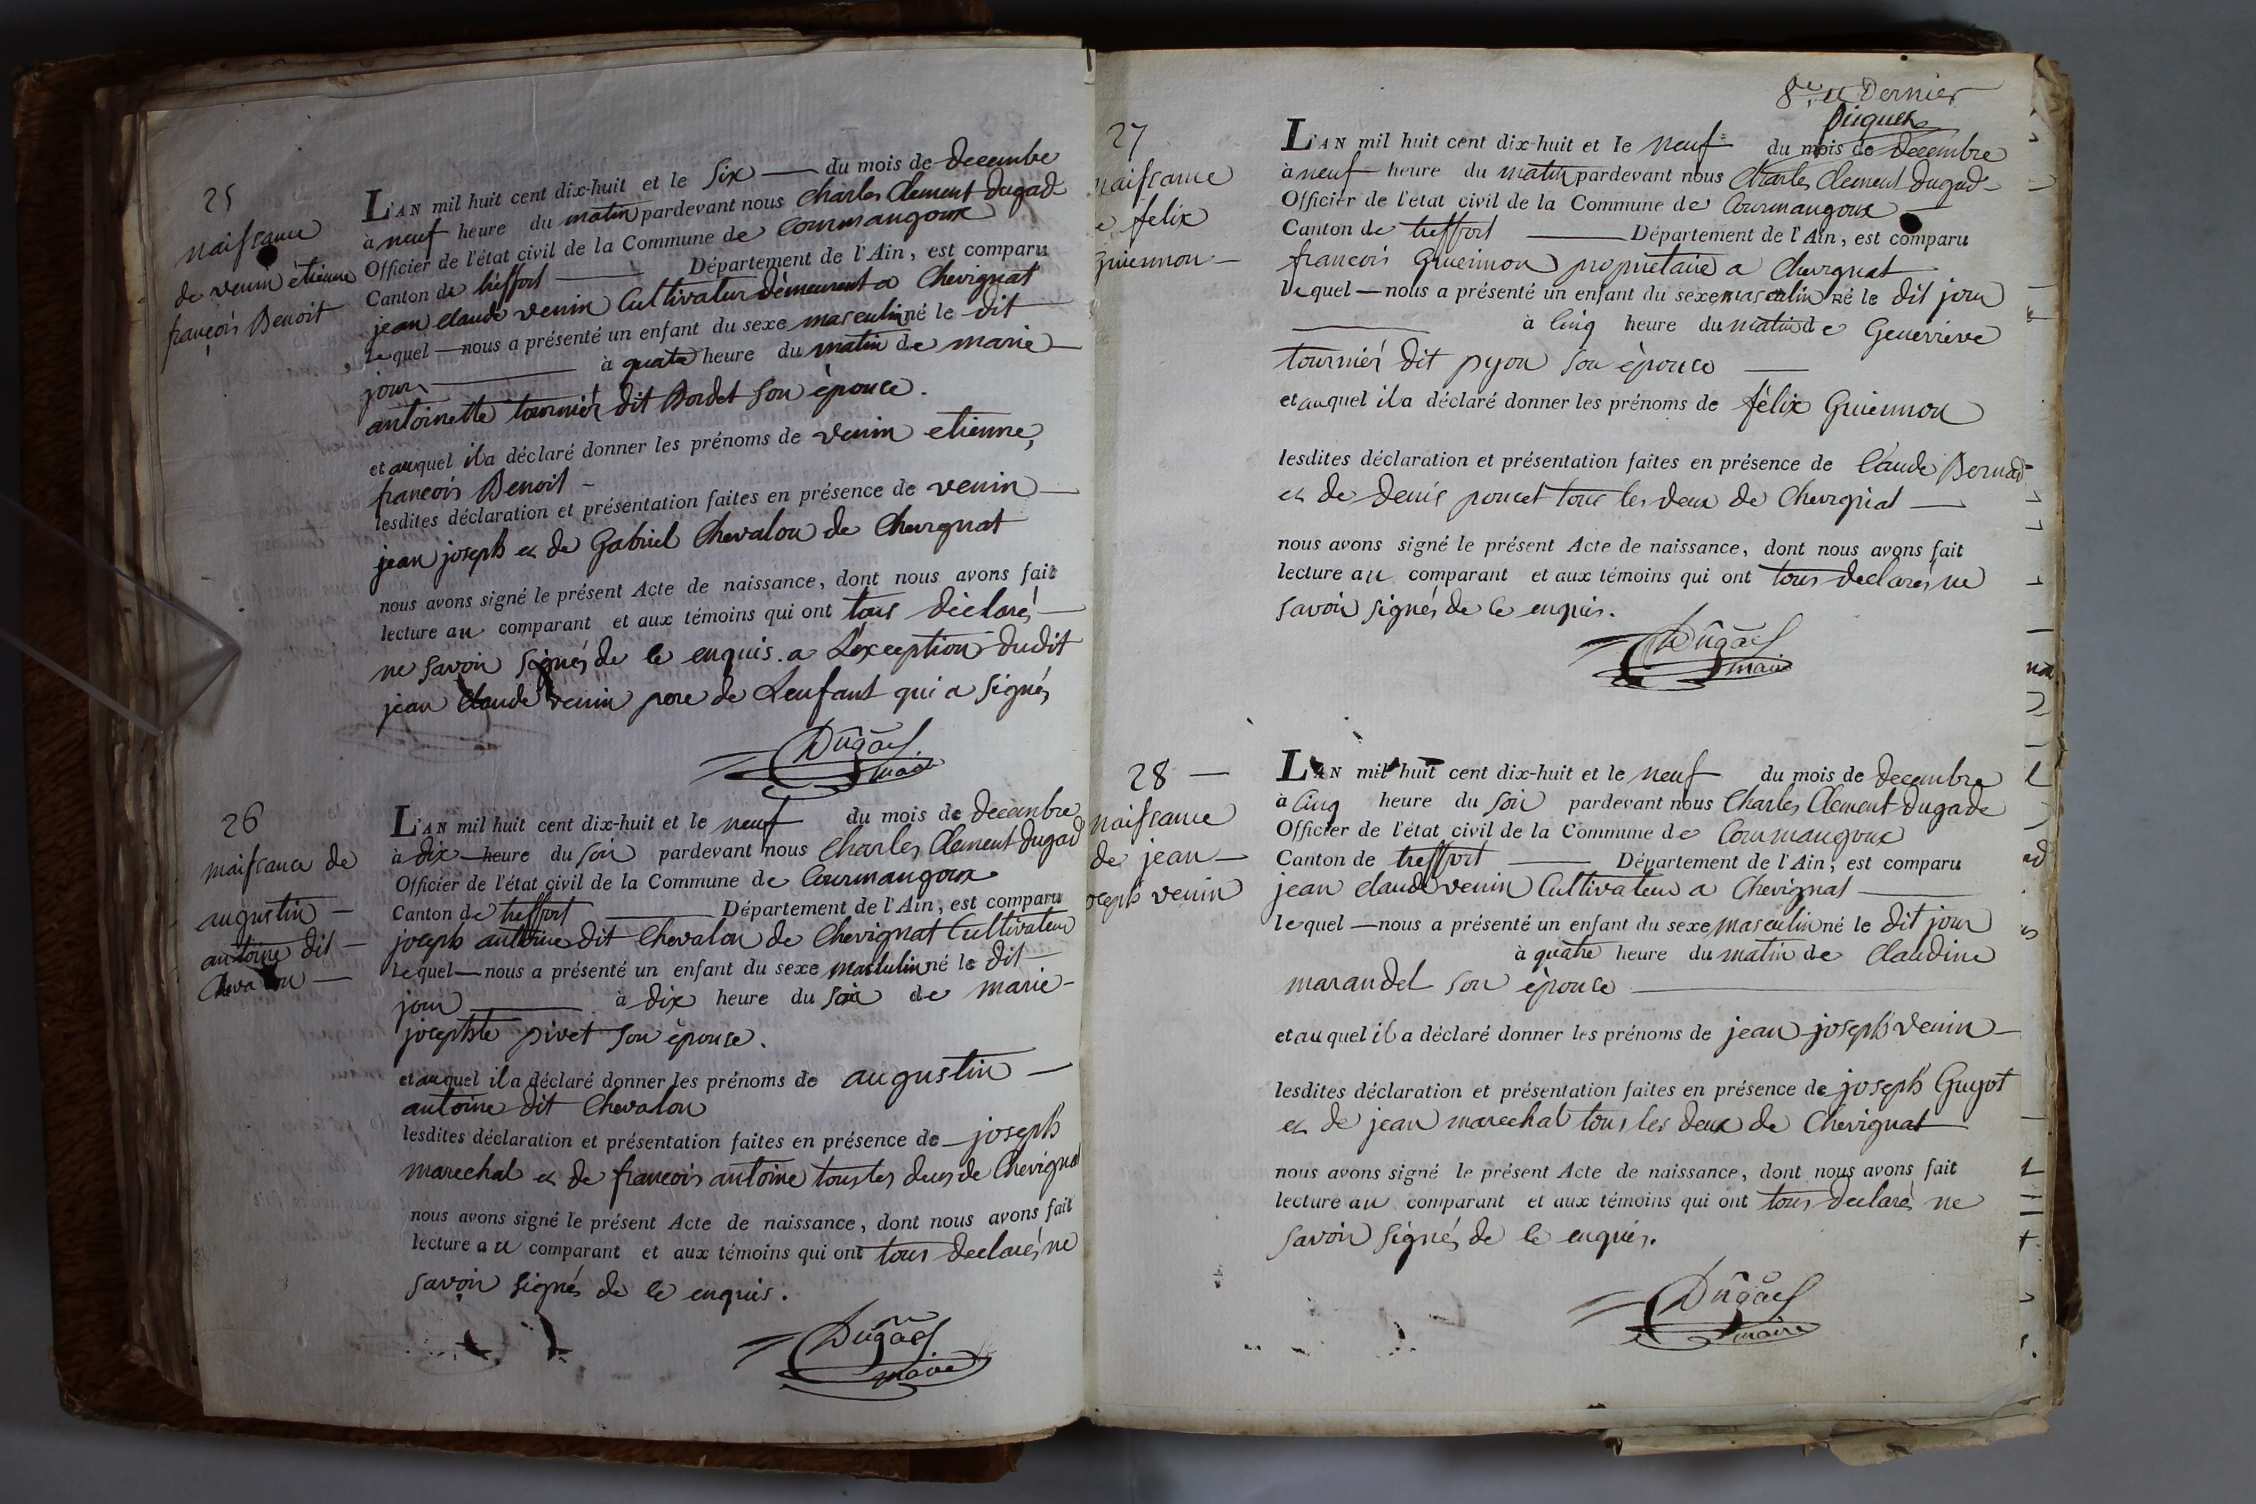 25
naissance
de venin étienne
françois Benoit
L'AN mil huit cent dix-huit et le six du mois de decembre
à neuf heure du matin pardevant nous Charles Clement dugad
Officier de l'état civil de la Commune de Courmangoux
Canton de tréffort Département de l'Ain, est comparu
jean claude venin Cultivateur demeurent a Chevignat
lequel nous a présenté un enfant du sexe masculin né le dit
jour à quatre heure du matin de marie
antoinette tournier dit Bordet son épouce.
et auquel il a déclaré donner les prénoms de venin etienne,
francois Benoit
lesdites déclaration et présentation faites en présence de venin
jean joseph et de Gabriel Chevalon de Chevignat
nous avons signé le présent Acte de naissance, dont nous avons fait
lecture au comparant et aux témoins qui ont tous déclaré
ne savoir signés de ce enquis. a L'exception dudit
jean claude venin pere de Lenfant qui a signés
Dugad
maire
26
naissance de
augustin
antoine dit
Chevalon
L'AN mil huit cent dix-huit et le neuf du mois de decembre
à dix heure du soir pardevant nous Charles Clement dugad
Officier de l'état civil de la Commune de Courmangoux
Canton de treffort Département de l'Ain, est comparu
joseph antoine dit Chevalon de Chevignat Cultivateur
lequel nous a présenté un enfant du sexe masculin né le dit
jour à dix heure du soir de marie
josephte pivet son épouce.
et auquel il a déclaré donner les prénoms de augustin
antoine dit Chevalon
lesdites déclaration et présentation faites en présence de joseph
marechal et de francois antoine tous les deus de Chevignat
nous avons signé le présent Acte de naissance, dont nous avons fait
lecture au comparant et aux témoins qui ont tous declarés ne
savoir signés de ce enquis.
Dugad
maire
8e et Dernier
27
naissance
e felix
Guiennon
L'AN mil huit cent dix-huit et le neuf du mois de decembre
à neuf heure du matin pardevant nous Charles Clement dugad
Officier de l'état civil de la Commune de Courmangoux
Canton de treffort Département de l'Ain, est comparu
francois Guiennon propriétaire a Chevignat
lequel nous a présenté un enfant du sexe masculin né le dit jour
à Cinq heure du matin de Genevieve
tournier dit pyon son épouce
et auquel il a déclaré donner les prénoms de félix Guiennon
lesdites déclaration et présentation faites en présence de Claude Bernad
et de denis poncet tous les deux de Chevignat
nous avons signé le présent Acte de naissance, dont nous avons fait
lecture au comparant et aux témoins qui ont tous declarés ne
savoir signés de ce enquis.
Dugad
maire
28
naissance
de jean
oseph venin
L'AN mil huit cent dix-huit et le neuf du mois de decembre
à Cinq heure du soir pardevant nous Charles Clement dugade
Officier de l'état civil de la Commune de Courmangoux
Canton de treffort Département de l'Ain, est comparu
jean claude venin Cultivateur a Chevignat
lequel nous a présenté un enfant du sexe masculin né le dit jour
à quatre heure du matin de Claudine
marandet son épouce
et auquel il a déclaré donner les prénoms de jean joseph venin
lesdites déclaration et présentation faites en présence de joseph Guyot
et de jean marechal tous les deux de Chevignat
nous avons signé le présent Acte de naissance, dont nous avons fait
lecture au comparant et aux témoins qui ont tous declarés ne
savoir signés de ce enquis.
Dugad
maire